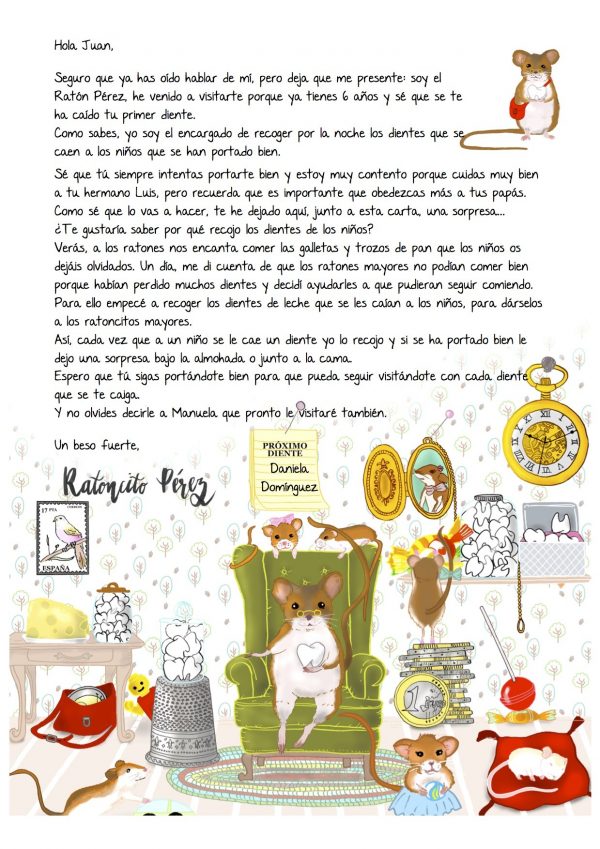 Hola Juan,
Seguro que ya has oído hablar de mí, pero deja que me presente: soy el
Ratón Pérez, he venido a visitarte porque ya tienes 6 años y sé que se te
ha caído tu primer diente.
Como sabes, yo soy el encargado de recoger por la noche los dientes que se
caen a los niños que se han portado bien.
Sé que tú siempre intentas portarte bien y estoy muy contento porque cuidas muy bien
a tu hermano Luis, pero recuerda que es importante que obedezcas más a tus papás.
Como sé que lo vas a hacer, te he dejado aquí, junto a esta carta, una sorpresa...
¿Te gustaría saber por qué recojo los dientes de los niños?
Verás, a los ratones nos encanta comer las galletas y trozos de pan que los niños os
dejáis olvidados. Un día, me di cuenta de que los ratones mayores no podían comer bien
porque habían perdido muchos dientes y decidí ayudarles a que pudieran seguir comiendo.
Para ello empecé a recoger los dientes de leche que se les caían a los niños, para dárselos
a los ratoncitos mayores.
Así, cada vez que a un niño se le cae un diente yo lo recojo y si se ha portado bien le
dejo una sorpresa bajo la almohada o junto a la cama.
Espero que tú sigas portándote bien para que pueda seguir visitándote con cada diente
que se te caiga.
Y no olvides decirle a Manuela que pronto le visitaré también.
Un beso fuerte,
Ratoncito Pérez
PRÓXIMO
DIENTE
Daniela
Domínguez
17 PTA
CORREOS
ESPAÑA
XII I II III IV V VI VII VIII IX X XI
1